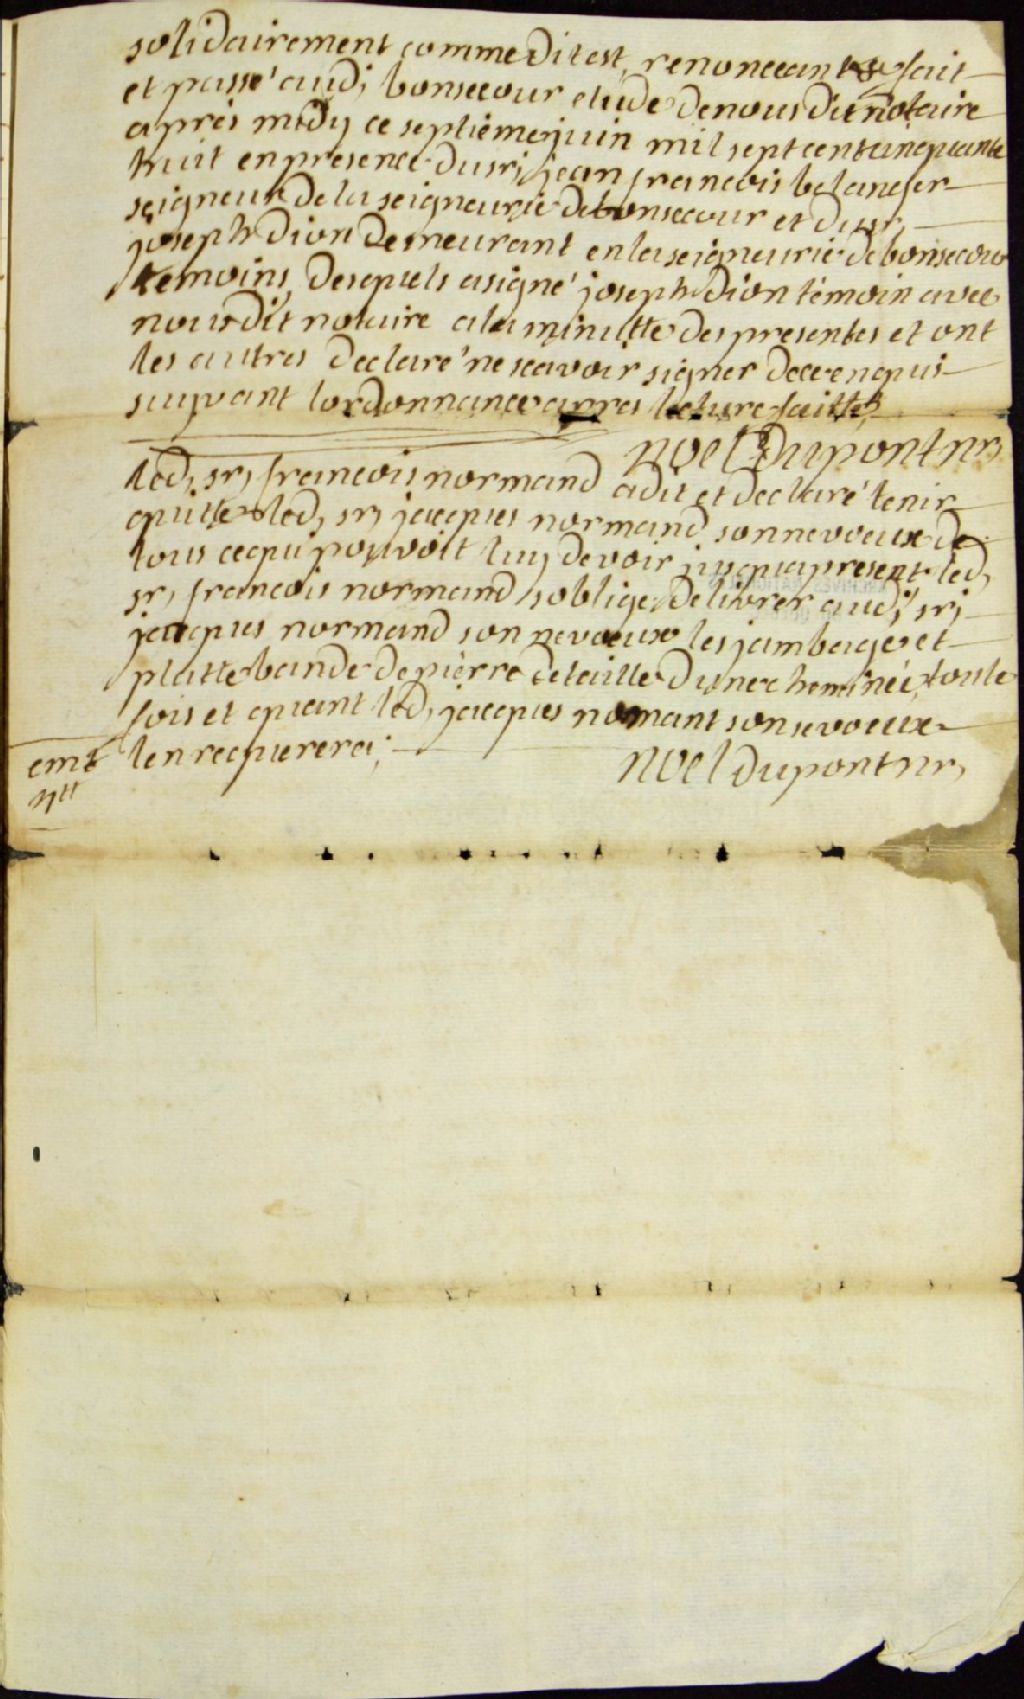 solidairement comme dit est, renonceant &c fait
et passé audi, bonsecour etude de nous dit notaire
apres midy ce septiéme juin mil sept cent cinquante
huit en presence du sr, jean francois belanger
seigneur de la seigneurie de bonsecour et du sr,
joseph dion demeurant en la seigneurie de bonsecour
temoins, desquels a signé joseph dion témoin avec
nous dit notaire a la minutte des presentes et ont
les autres declaré ne scavoir signer de ce enquis
suyvant lordonnance apres lecture faitte,
noel dupont nr,
led, sr, francois normand a dit et declaré tenir
quitte led, sr, jacques normand son nevoeux de
tous ce qui pouvoit luy devoir jusqu a present led,
sr, francois normand soblige de livrer audi, sr,
jacques normand son nevoeux les jambage et
platte bande de pierre de taille dune cheminée, toute
fois et quant led, jacques normant son nevoeux
len requerera;
noel dupont nr,